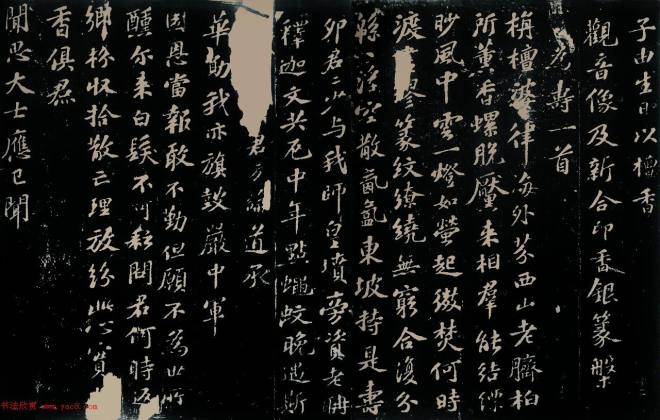 子由生日以檀香
觀音像及新合印香銀篆槃
為壽一首
栴檀婆律海外芬西山老臍柏
所薰香螺脫黶来相羣能結縹
緲風中雲一燈如螢起微焚何時
渡繆篆紋繚繞無窮合復分
綿綿浮空散氤氳東坡持是壽
卯君君少与我師皇墳旁資老聃
釋迦文共厄中年點蠅蚊晚遇斯
君方論道承
華勛我亦旗鼓嚴中軍
國恩當報敢不勤但願不為世所
醺尔来白髮不可耘問君何時返
鄉枌收拾散亡理放紛此心實
香俱焄
聞思大士應已聞
书法欣赏 www.yac8.com